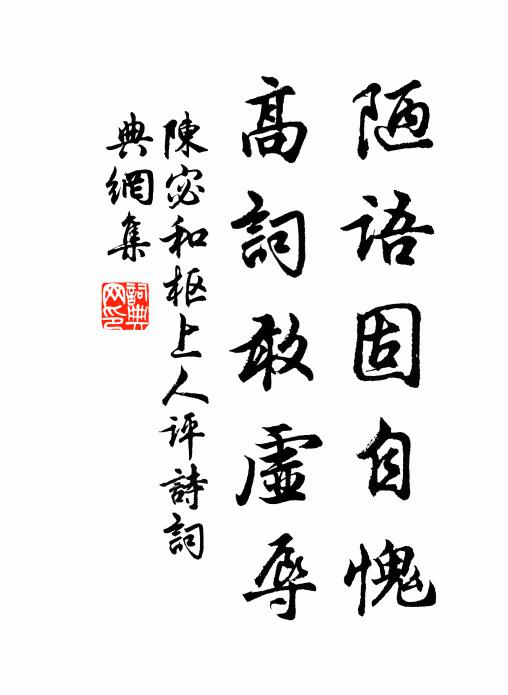 陋语固自愧
高詞敢虛辱
陳宓和柩上人评詩詞
典網集
詞典網印